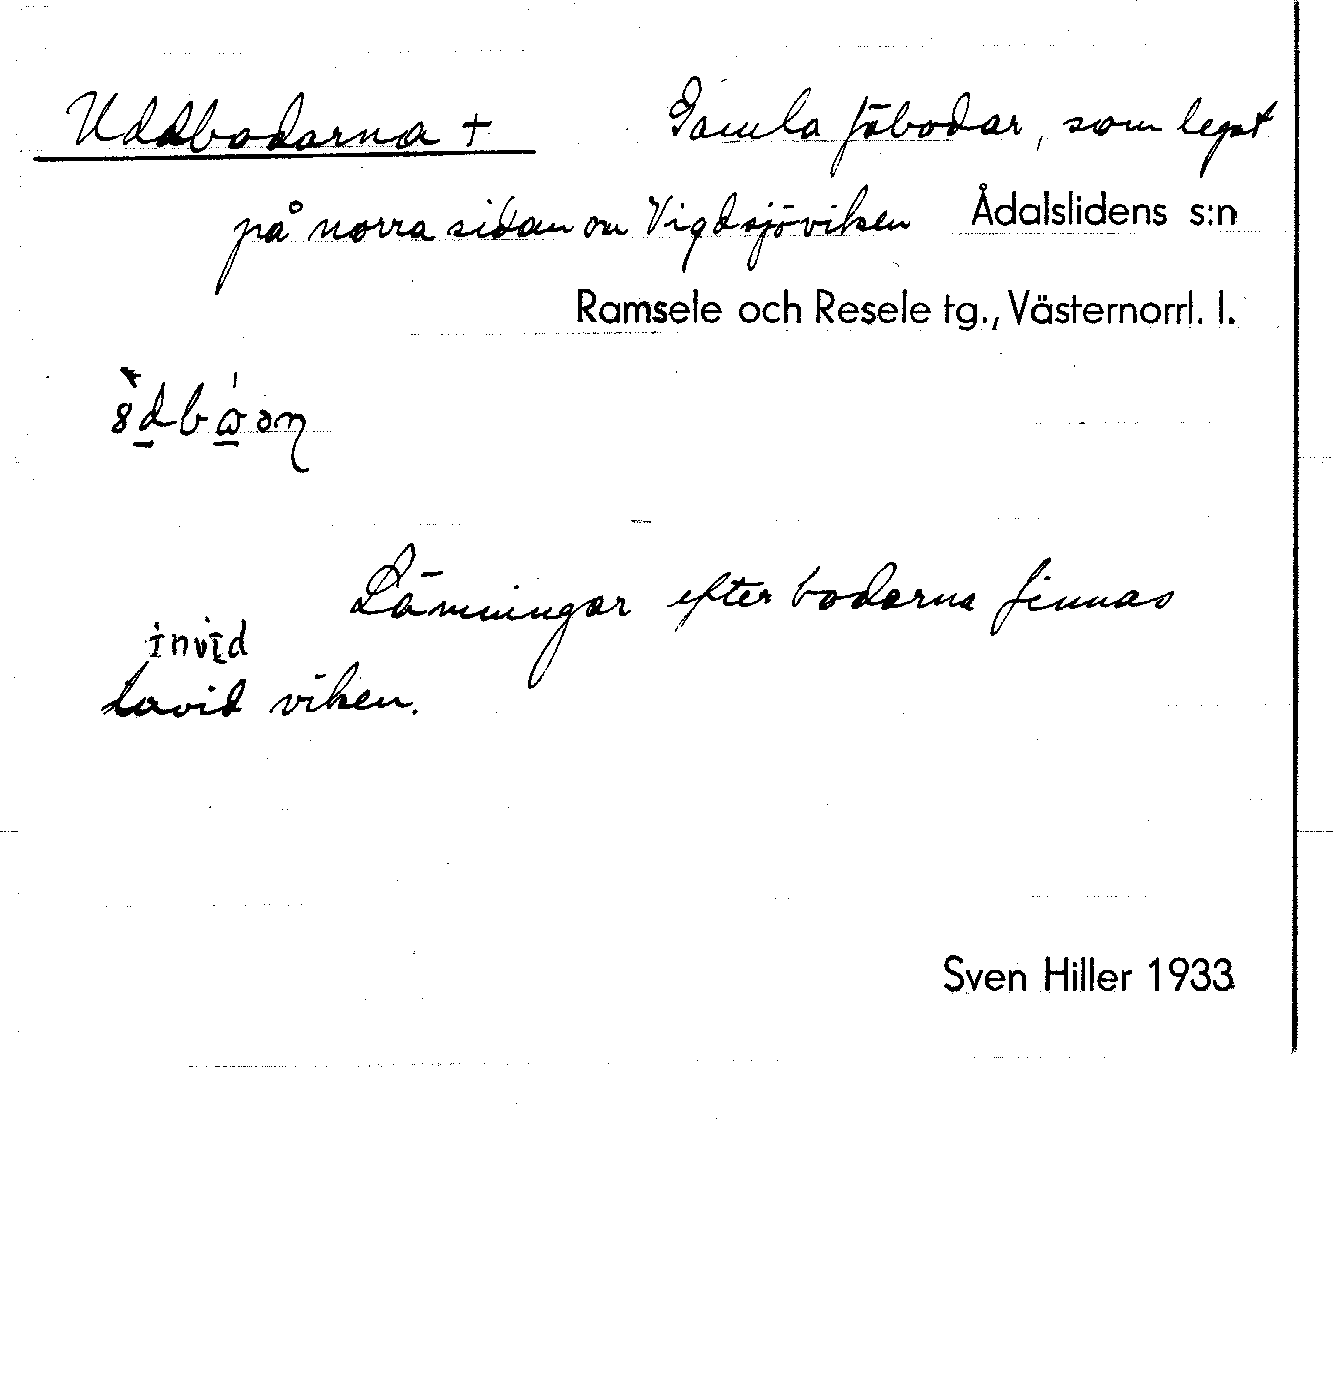 Uddbodarna + Gamla fäbodar, som legat
på norra sidan om Vigdsjöviken Ådalslidens s:n
Ramsele och Resele tg., Västernorrl. l.
Lämningar efter bodarna finnas
invid
invid viken.
Sven Hiller 1933